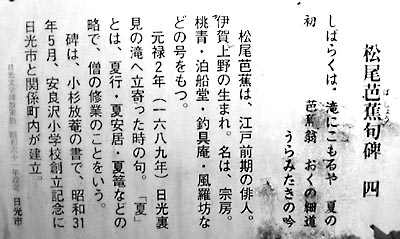 松尾芭蕉句碑 四
ばしょう
しばらくは・滝にこもるや 夏の
初 芭蕉翁 おくの細道
うらみたきの吟
松尾芭蕉は、江戸前期の俳人。
伊賀上野の生まれ。名は、宗房。
桃青・泊船堂・釣月庵・風羅坊な
どの号をもつ。
元禄2年(一六八九年)日光裏
見の滝へ立寄った時の句。「夏」
とは、夏行・夏安居・夏篭などの
略で、僧の修業のことをいう。
碑は、小杉放菴の書で、昭和31
年5月、安良沢小学校創立記念に
日光市と関係町内が建立。
日光市